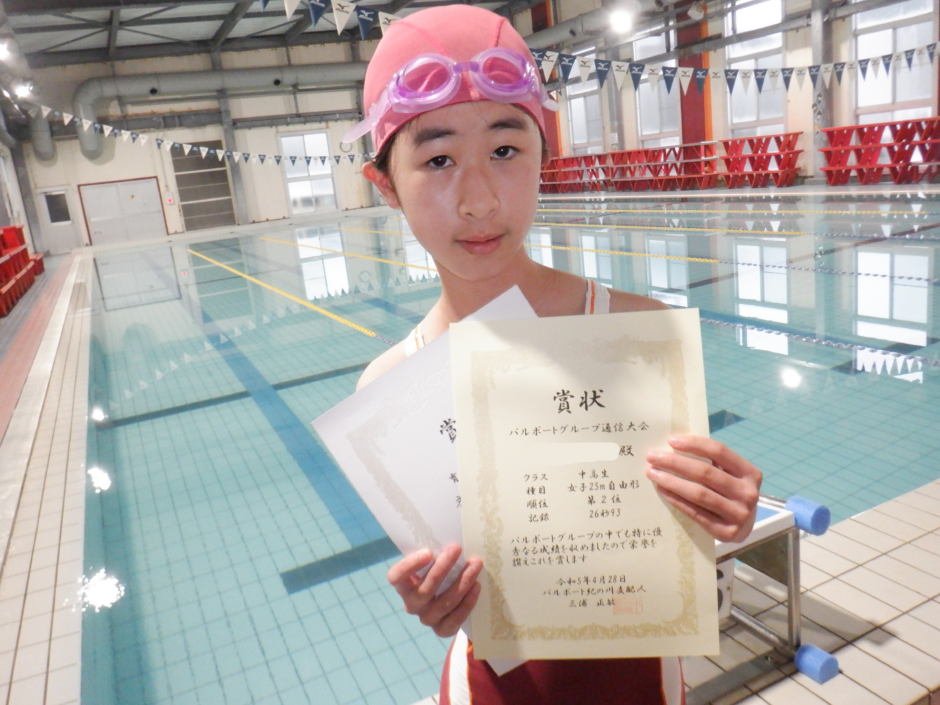 賞状
パルポートグループ通信大会
殿
クラス 中高生
種目 女子25m自由形
順位 第2位
記録 26秒93
パルポートグループの中でも特に優
秀なる成績を収めましたので栄誉を
讃えこれを賞します
令和5年4月28日
パルポート紀の川支配人
三浦 正敏
賞